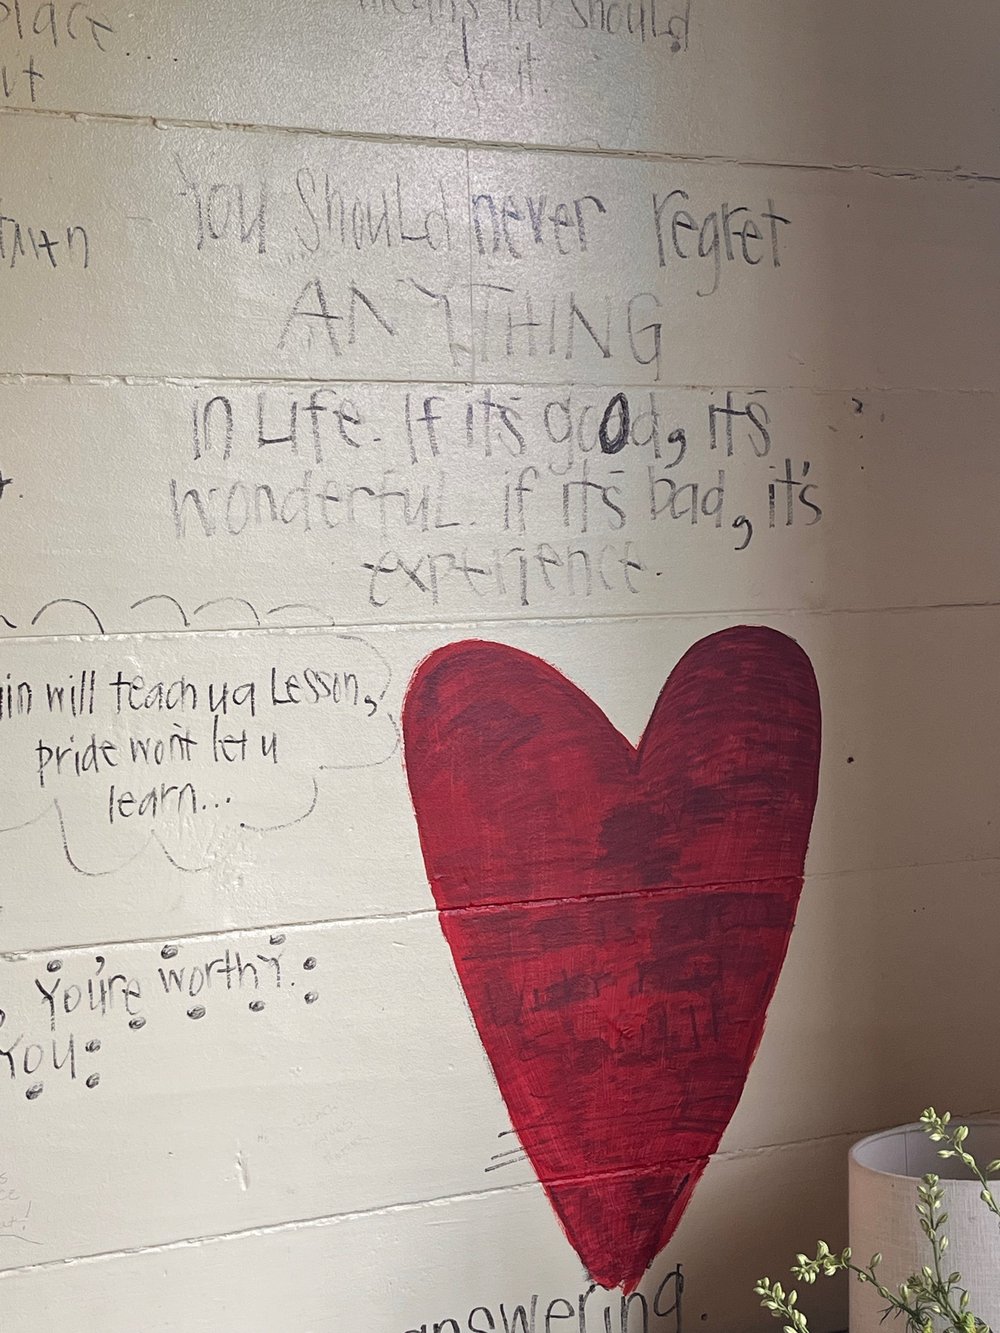 place....
it
means you should
do it.
You Should never regret
ANYTHING
in Life. If it's good, it's
wonderful. if it's bad, it's
experience.
will teach ya Lesson,
pride won't let u
learn...
You're worthy.
You
answering.